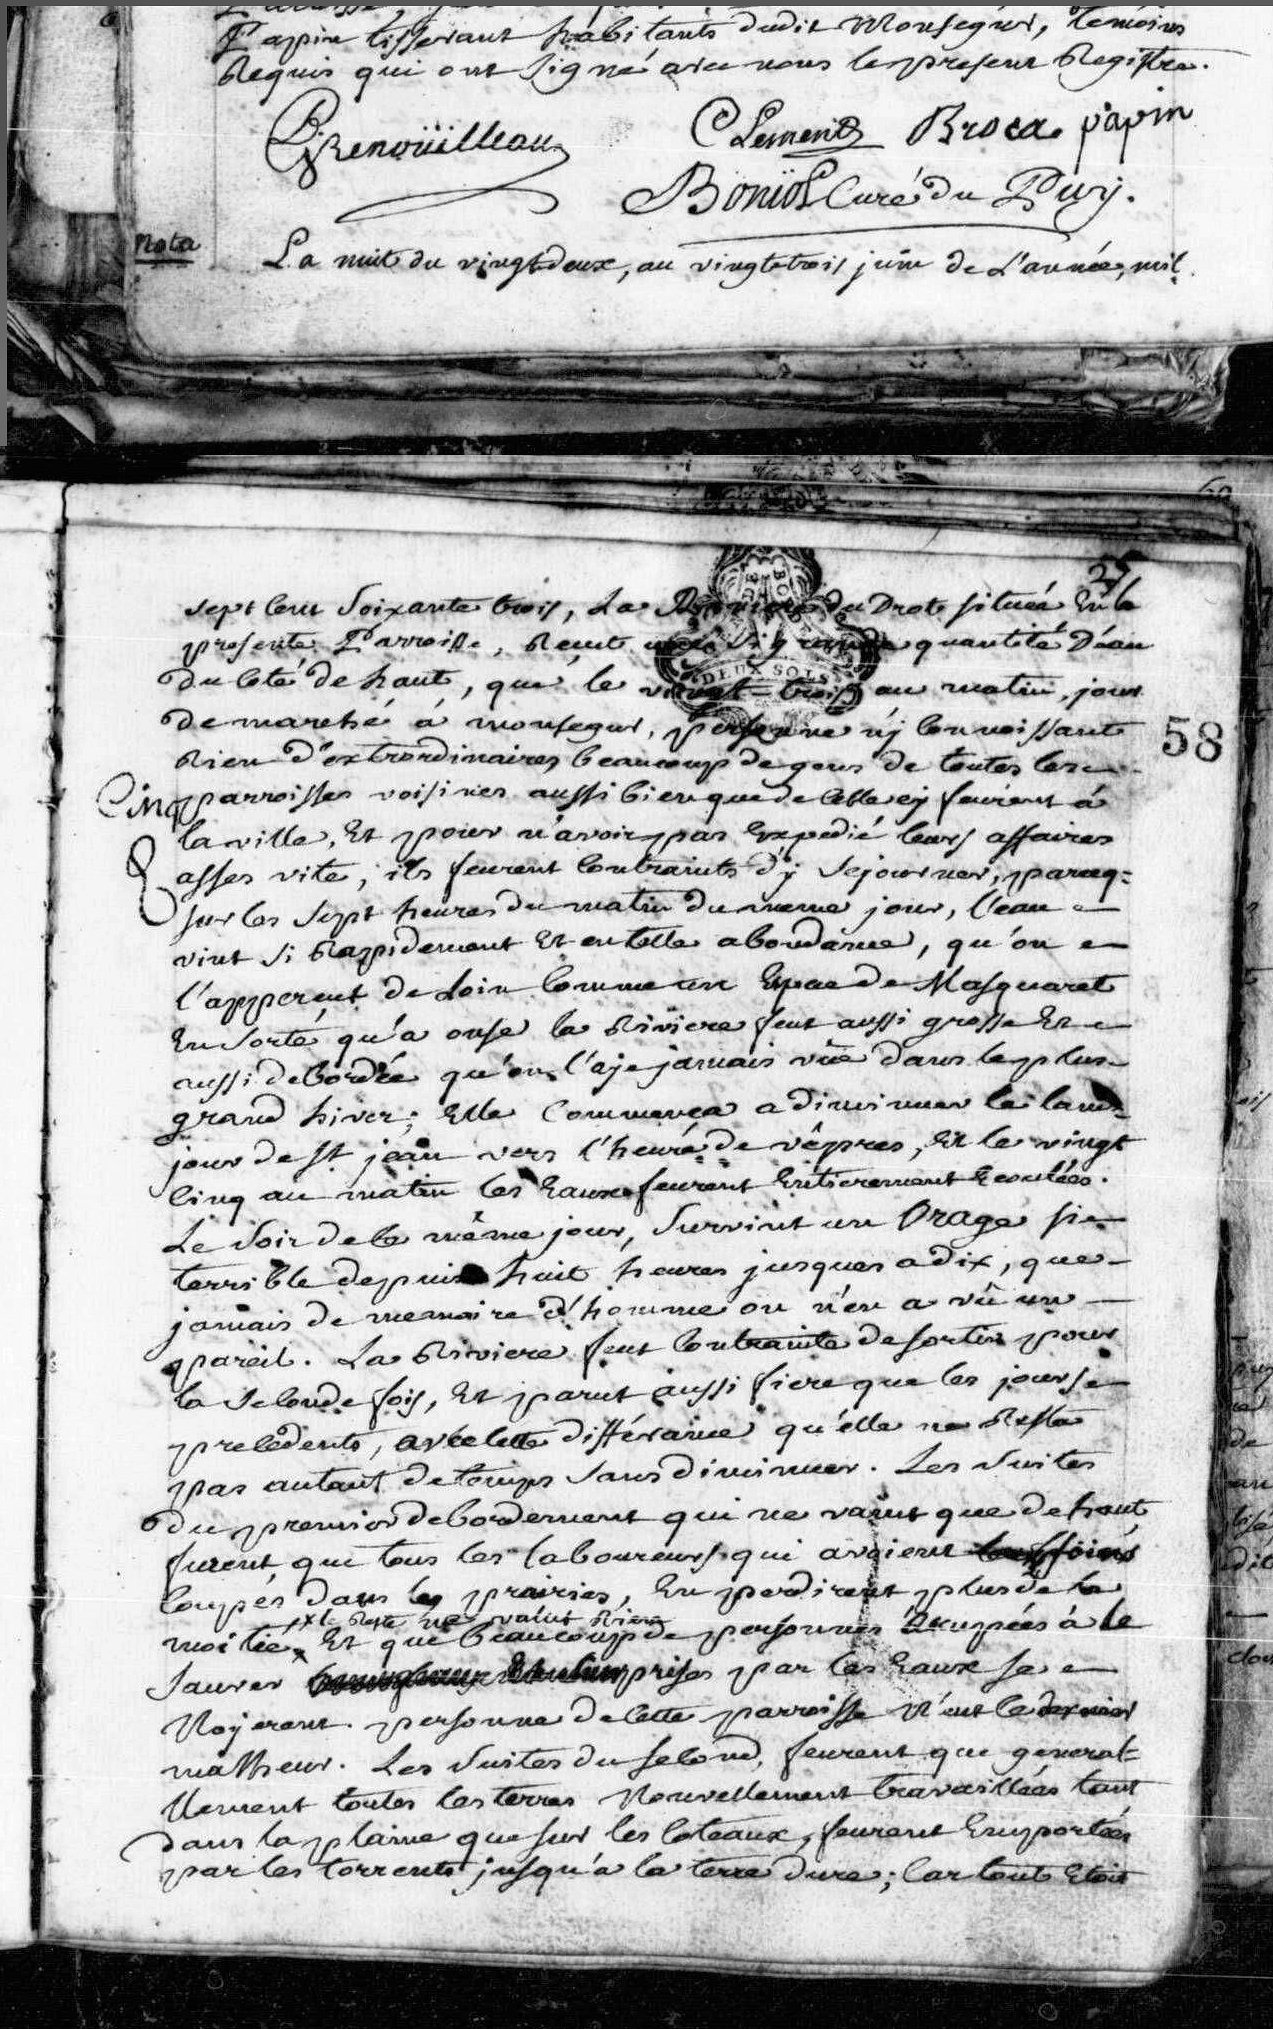 Papin tisserant habitants dudit Monségur, témoins
Requis qui ont signé avec nous le present Registre.
Grenoüilleau
Clement Broca papin
Boniol Curé du Puy.
Nota
La nuit du vingt deux, au vingt trois juin de L'année, mil
27
sept cent soixante trois, La Riviere du Drot située En la
presente Parroisse, Reçut une si grande quantité D'éau
DEUX SOLS
du coté de haut, que le vingt-trois au matin, jour
de marché à monsegur, personne n'y connoissant
58
Rien d'extrordinaire, beaucoup de gens de toutes les
parroisses voisines aussi bien que de celle cy feurent à
Cinq
la ville, Et pour n'avoir pas Expedié leurs affaires
asses vite, ils feurent contraints d'y sejourner, parceq:
sur les sept heures du matin du meme jour, l'eau
vint si Rappidement Et en telle abondance, qu'on
l'apperçut de Loin comme un Espece de Masquaret
En sorte qu'a onse la Riviere feut aussi grosse Et
aussi debordée qu'on l'aje jamais vüe dans le plus
grand hiver; Elle Commença a diminuer le
jour de St jean vers l'heure de vêpres, Et le vingt
cinq au matin les Eaux feurent Entierement Ecoulées.
Le soir de ce même jour, survint un Orage si
terrible depuis huit heures jusques a dix, que
jamais de memoire d'homme on n'en a vû un
pareil. La Riviere feut contrainte de sortir pour
la seconde fois, Et parut aussi fiere que les jours
precedents, avec cette différance qu'elle ne Resta
pas autant de temps sans diminuer. Les suites
du premier debordement qui ne vaint que de haut
furent, que tous les laboureurs qui avoient les foins
coupés dans les prairies, En perdirent plus de la
x le Reste ne valut Rien
moitié x Et que beaucoup de personnes occupées à le
sauver surprises par les Eaux se
Noyerent. personne de cette parroisse N'eut ce dernier
malheur. Les suites du second, feurent que general-
lement toutes les terres Nouvellement travaillées tant
dans la plaine que sur les coteaux, feurent Emportées
par les torrents jusqu'a la terre dure; Car tout Etoit